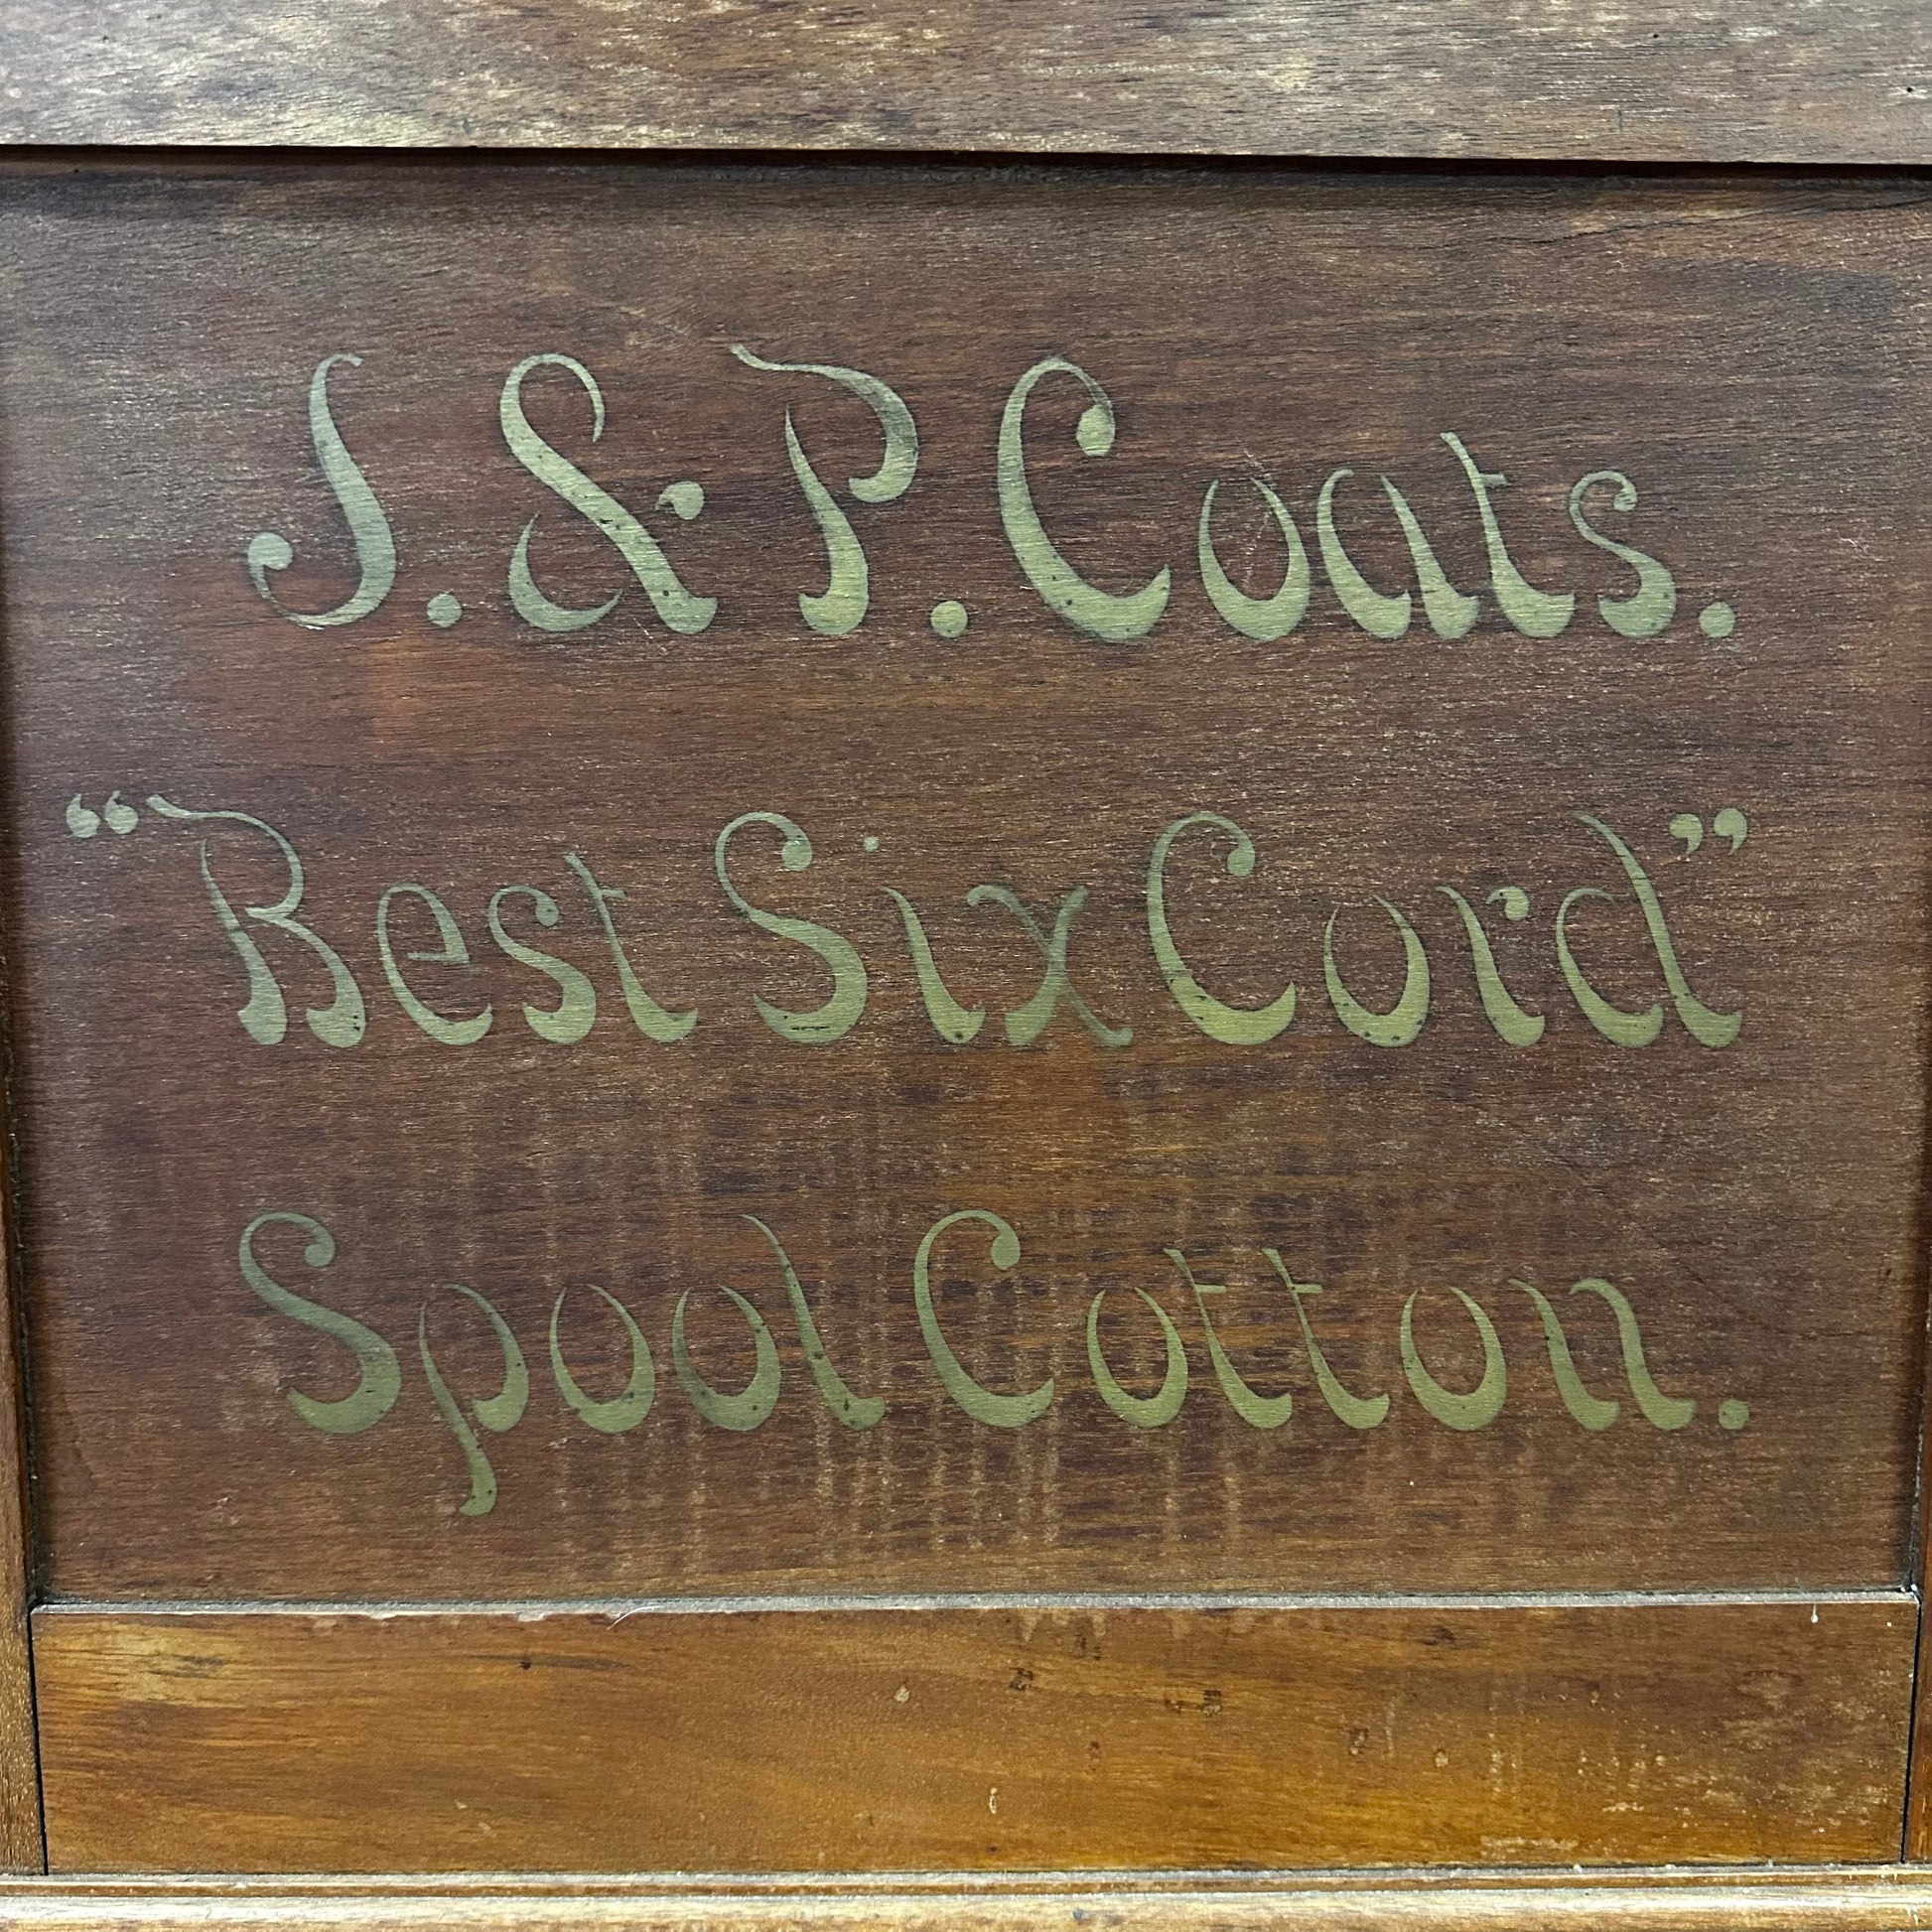 J. & P. Coats.
“Best Six Cord”
Spool Cotton.